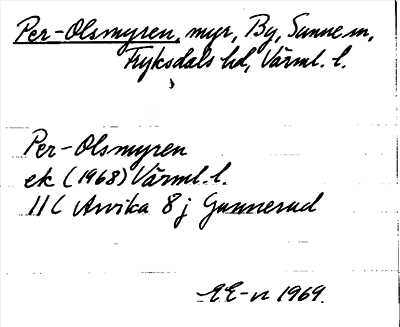 Per-Olsmyren, myr, By, Sunne sn,
Fryksdals hd, Värml. l.
Per-Olsmyren
ek (1968) Värml. l.
11C Arvika 8 j Gunnerud
EE-n 1969.